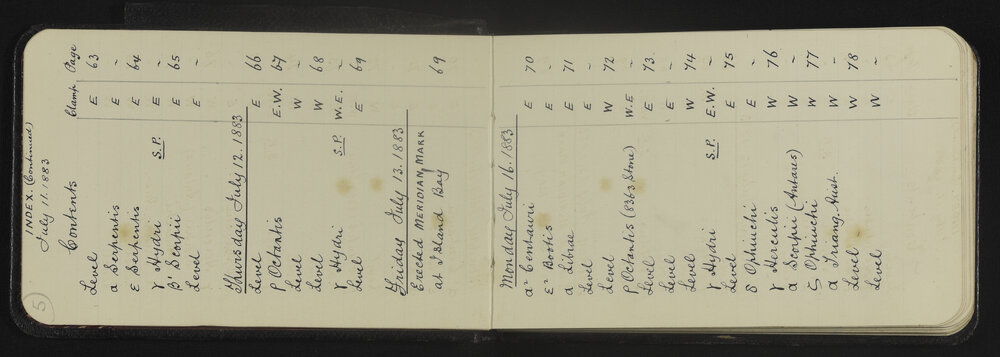 5
INDEX. (Continued.)
July 11. 1883
Contents Clamp. Page
Level E 63
α Serpentis E "
ε Serpentis E 64
γ Hydri S.P. E "
β' Scorpii E 65
Level E "
Thursday July 12. 1883
Level E 66
ρ Octantis E.W. 67
Level W "
Level W 68
γ Hydri S.P. W.E. "
Level E 69
Friday July 13. 1883
Erected MERIDIAN MARK
at Island Bay 69
Monday July 16. 1883
α² Centauri E 70
ε² Bootis E "
α Librae E 71
Level E "
Level W 72
ρ Octantis (8363 Stone) W.E "
Level E 73
Level E "
Level W 74
γ Hydri S.P. E.W. "
Level E 75
δ Ophiuchi E "
γ Herculis W 76
α Scorpii (Antares) W "
ζ Ophiuchi W 77
α Triang. Aust. W "
Level W 78
Level W "